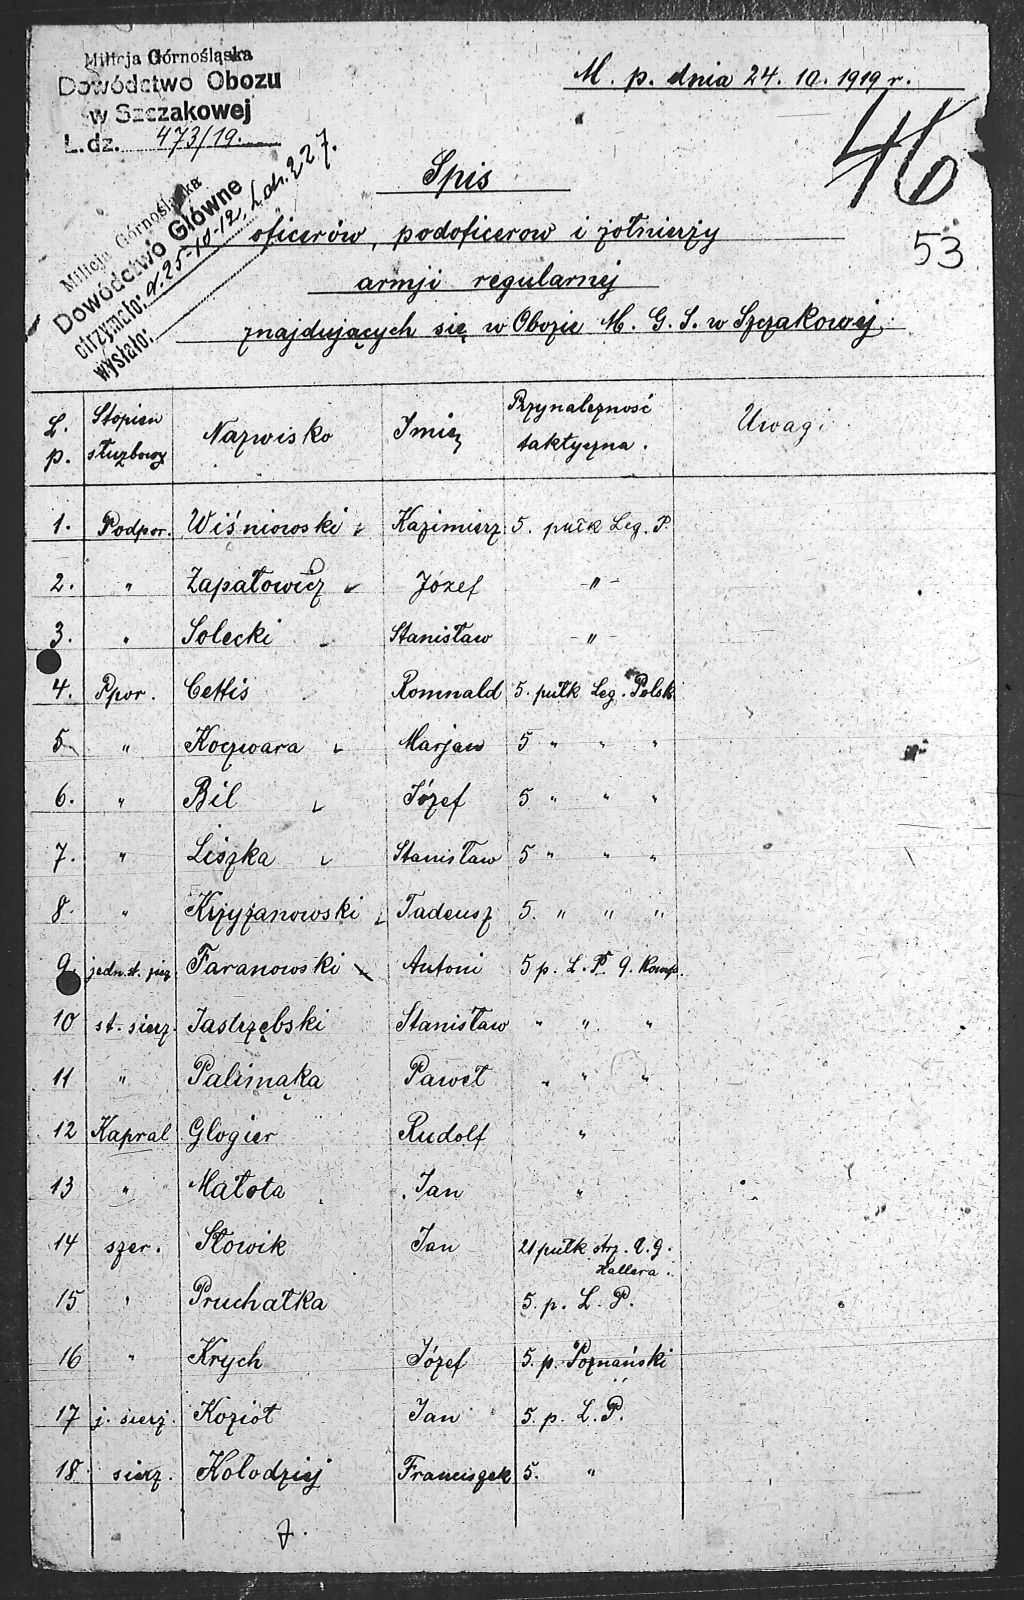 Milicja Górnośląska
Dowództwo Obozu
w Szczakowej
L. dz. 473/19.
M. p. dnia 24. 10. 1919 r.
46
Milicja Górnośląska
Dowództwo Główne
otrzymało: d. 25-10-12. L.dz. 227.
wysłało:
53
Spis
oficerów, podoficerow i żołnierzy
armji regularnej
znajdujących się w Obozie M. G. S. w Szczakowej.
L. p. Stopień służbowy Nazwisko Imię Przynależność taktyczna. Uwagi
1. Podpor. Wiśniowski Kazimierz 5. pułk Leg. P.
2. " Zapałowicz Józef -"-
3. " Solecki Stanisław -"-
4. Ppor. Cettis Romnald 5. pułk Leg. Polsk
5 " Koczwara Marjan 5 " " "
6. " Bil Józef 5 " " "
7. " Liszka Stanisław 5 " " "
8. " Krzyżanowski Tadeusz 5. " " "
9. jedn. st. Taranowski Antoni 5 p. L. P. 9. Komp.
10 st. sierz. Jastrzębski Stanisław " " "
11 " Palimąka Paweł " " "
12 Kapral Glogier Rudolf "
13 " Małota Jan "
14 szer. Słowik Jan 21 pułk strz.
Hallera.
15 " Pruchatka 5. p. L. P.
16 " Krych Józef 5. p. Poznański
17 j. sierz. Kozioł Jan 5. p. L. P.
18 sierz. Kolodziej Franciszek 5. "